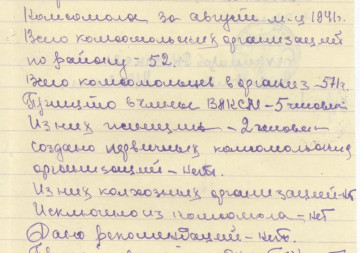 Комсомола за август м-ц 1941г.
Всего комсомольских организаций
по району - 52.
Всего комсомольцев в организ - 571.
Принято в члены ВЛКСМ - 5 человек
Из них женщин - 2 человек
создано первичных комсомольских
организаций - нет.
Из них колхозных организаций - нет
Исключено из комсомола - нет
Дано рекомендаций - нет.